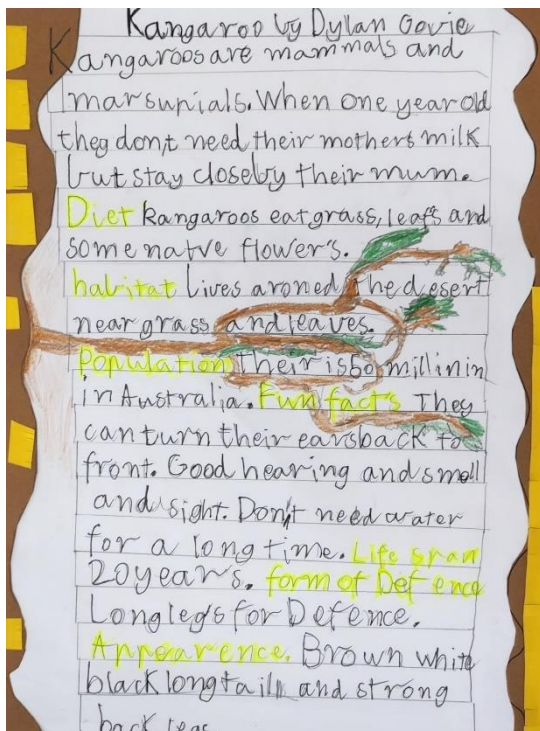 Kangaroo by Dylan Govie
Kangaroos are mammals and
marsunials. When one year old
they don,t need their mothers milk
but stay closeby their mum.
Diet kangaroos eat grass, leafs and
some natve flower's.
habitat Lives aroned the desert
near grass and leaves.
Population their is 50 millinin
in Australia. Fun facts They
can turn their ears back to
front. Good hearing and smell
and sight. Don't need water
for a long time. Life span
20 years. form of Defence
Long legs for Defence.
Appearence. Brown white
black long tail and strong
back legs